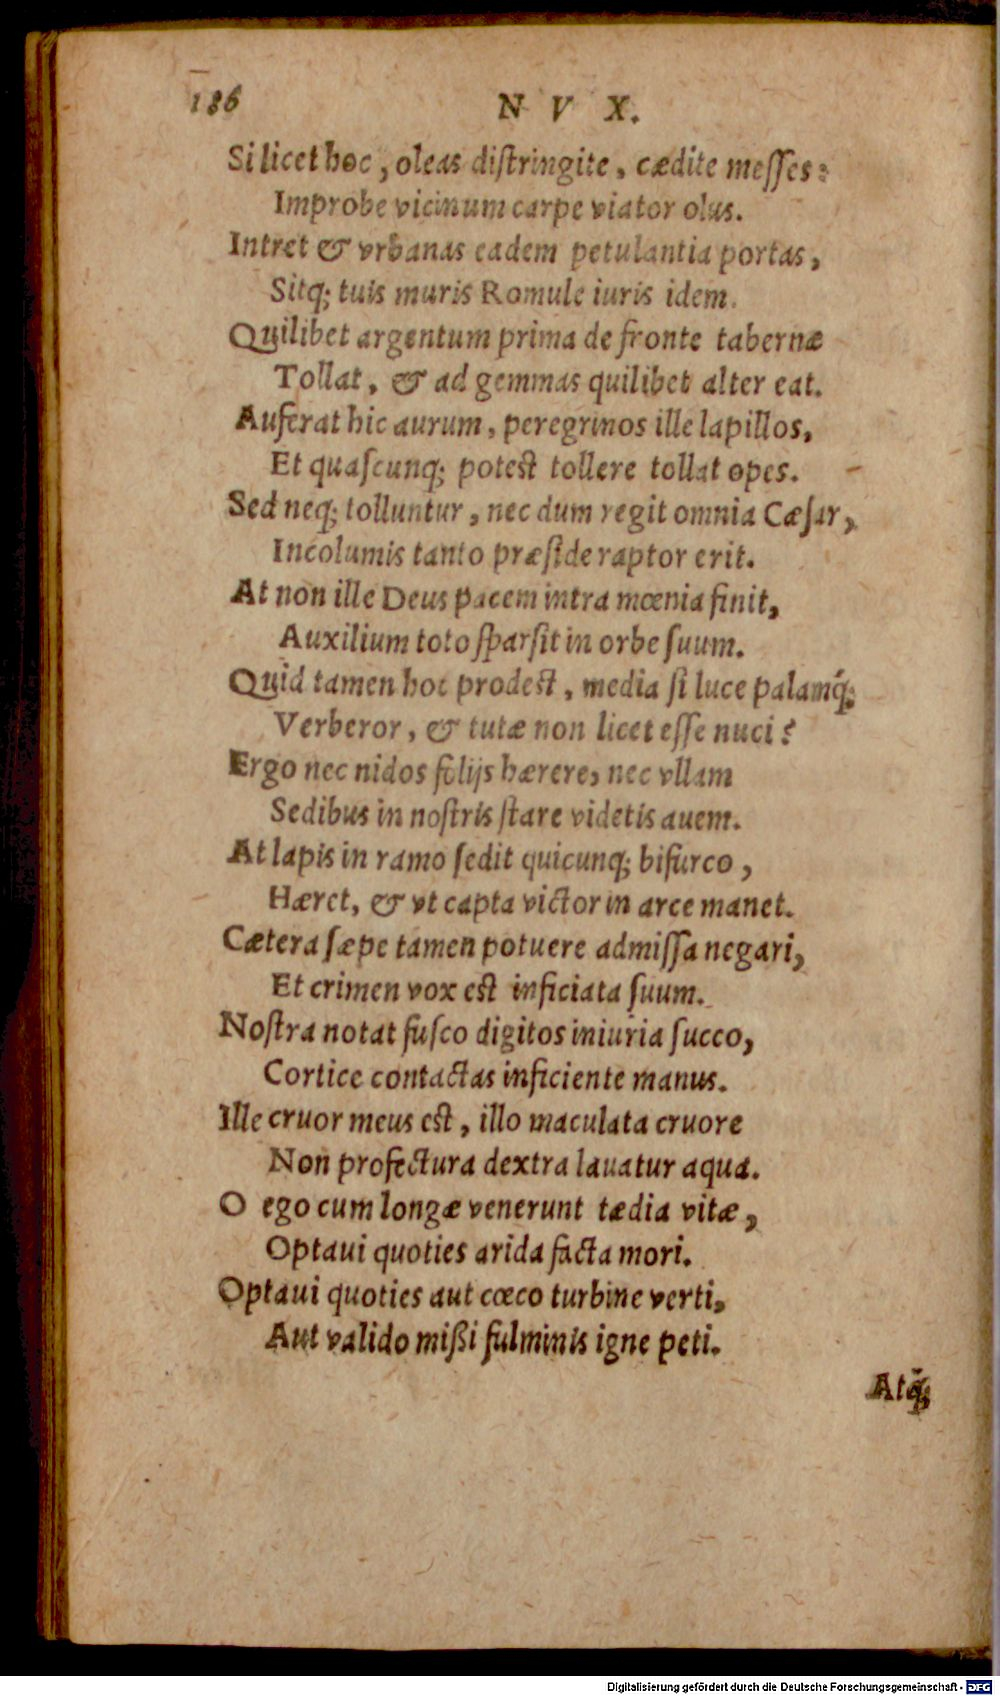 186
N V X.
Si licet hoc, oleas diſtringite, cædite meſſes:
Improbe vicinum carpe viator olus.
Intret & vrbanas eadem petulantia portas,
Sitq; tuis muris Romule iuris idem.
Quilibet argentum prima de fronte tabernæ
Tollat, & ad gemmas quilibet alter eat.
Auferat hic aurum, peregrinos ille lapillos,
Et quaſcunq; poteſt tollere tollat opes.
Sed neq; tolluntur, nec dum regit omnia Cæſar,
Incolumis tanto præſide raptor erit.
At non ille Deus pacem intra mœnia finit,
Auxilium toto ſparſit in orbe ſuum.
Quid tamen hoc prodeſt, media ſi luce palamq́;
Verberor, & tutæ non licet eſſe nuci?
Ergo nec nidos folijs hærere, nec vllam
Sedibus in noſtris ſtare videtis auem.
At lapis in ramo ſedit quicunq; bifurco,
Hæret, & vt capta victor in arce manet.
Cætera ſæpe tamen potuere admiſſa negari,
Et crimen vox eſt inficiata ſuum.
Noſtra notat fuſco digitos iniuria ſucco,
Cortice contactas inficiente manus.
Ille cruor meus eſt, illo maculata cruore
Non profectura dextra lauatur aqua.
O ego cum longæ venerunt tædia vitæ,
Optaui quoties arida facta mori.
Optaui quoties aut cœco turbine verti,
Aut valido mißi fulminis igne peti.
Atq́;
Digitalisierung gefördert durch die Deutsche Forschungsgemeinschaft - DFG